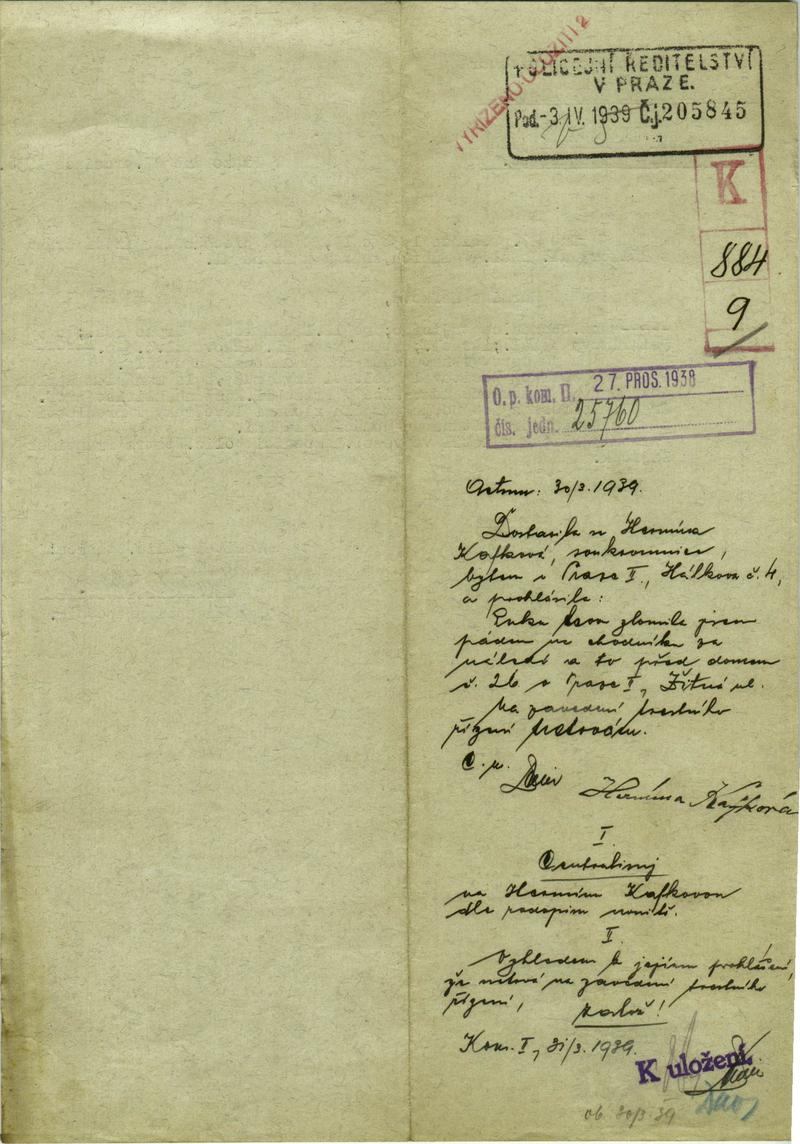 VYŘÍZENO-ULOŽITI 2
POLICEJNÍ ŘEDITELSTVÍ
V PRAZE.
Pod. -3. IV. 1939 Čj. 205845
K
884
9
O. p. kom. II. 27. PROS. 1938
čís. jedn. 25760
30/3. 1939.
Dostavila se Hermína
Kafková, soukromnice,
bytem v Praze II., Hálkova č. 4,
a prohlásila:
Ruku levou zlomila jsem
pádem na chodníku za
náledí a to před domem
č. 26 v Praze II., Žitná ul.
Na zavedení trestního
řízení netrvám.
Hermína Kafková
I
na Hermínu Kafkovou
dle
II.
Vzhledem k jejímu prohlášení,
že netrvá na zavedení trestního
řízení,
Kom. II, 31/3. 1939.
K uložení.
30/3 39